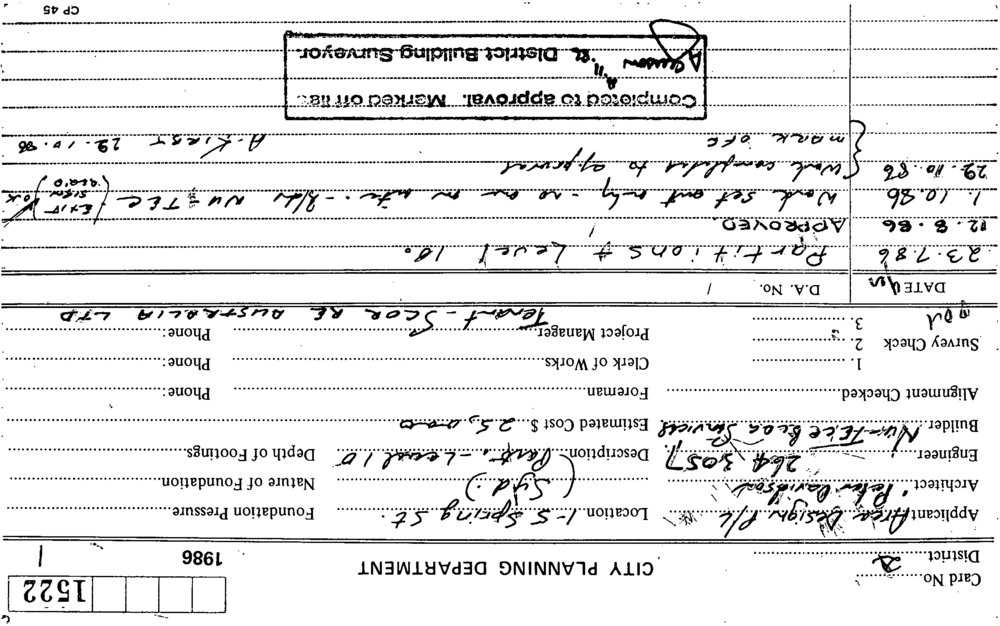 1522
CITY PLANNING DEPARTMENT
1986
Card No.
District 2
Applicant Area Design P/L Location 1-5 Spring St. Foundation Pressure
Architect Peter Davidson (Syd.) Nature of Foundation
Engineer 264 3057 Description (Part. - Level 10 Depth of Footings
Builder Nu-Tece Bldg Services Estimated Cost $ 25,000
Alignment Checked Foreman Phone:
Survey Check 1. Clerk of Works Phone:
2. Project Manager Phone:
3. Tenant - SCOR RE AUSTRALIA LTD
DATE D.A. No.
23.7.86 Partitions Level 10.
12.8.86 APPROVED.
1.10.86 Work set out only - no one on site - NU-TEC (EXIT SIGN REQ'D) OK
29.10.86 Work completed to approval
MARK OFF A. KIRST 29.10.86
Completed to approval. Marked off list
District Building Surveyor.
CP 45